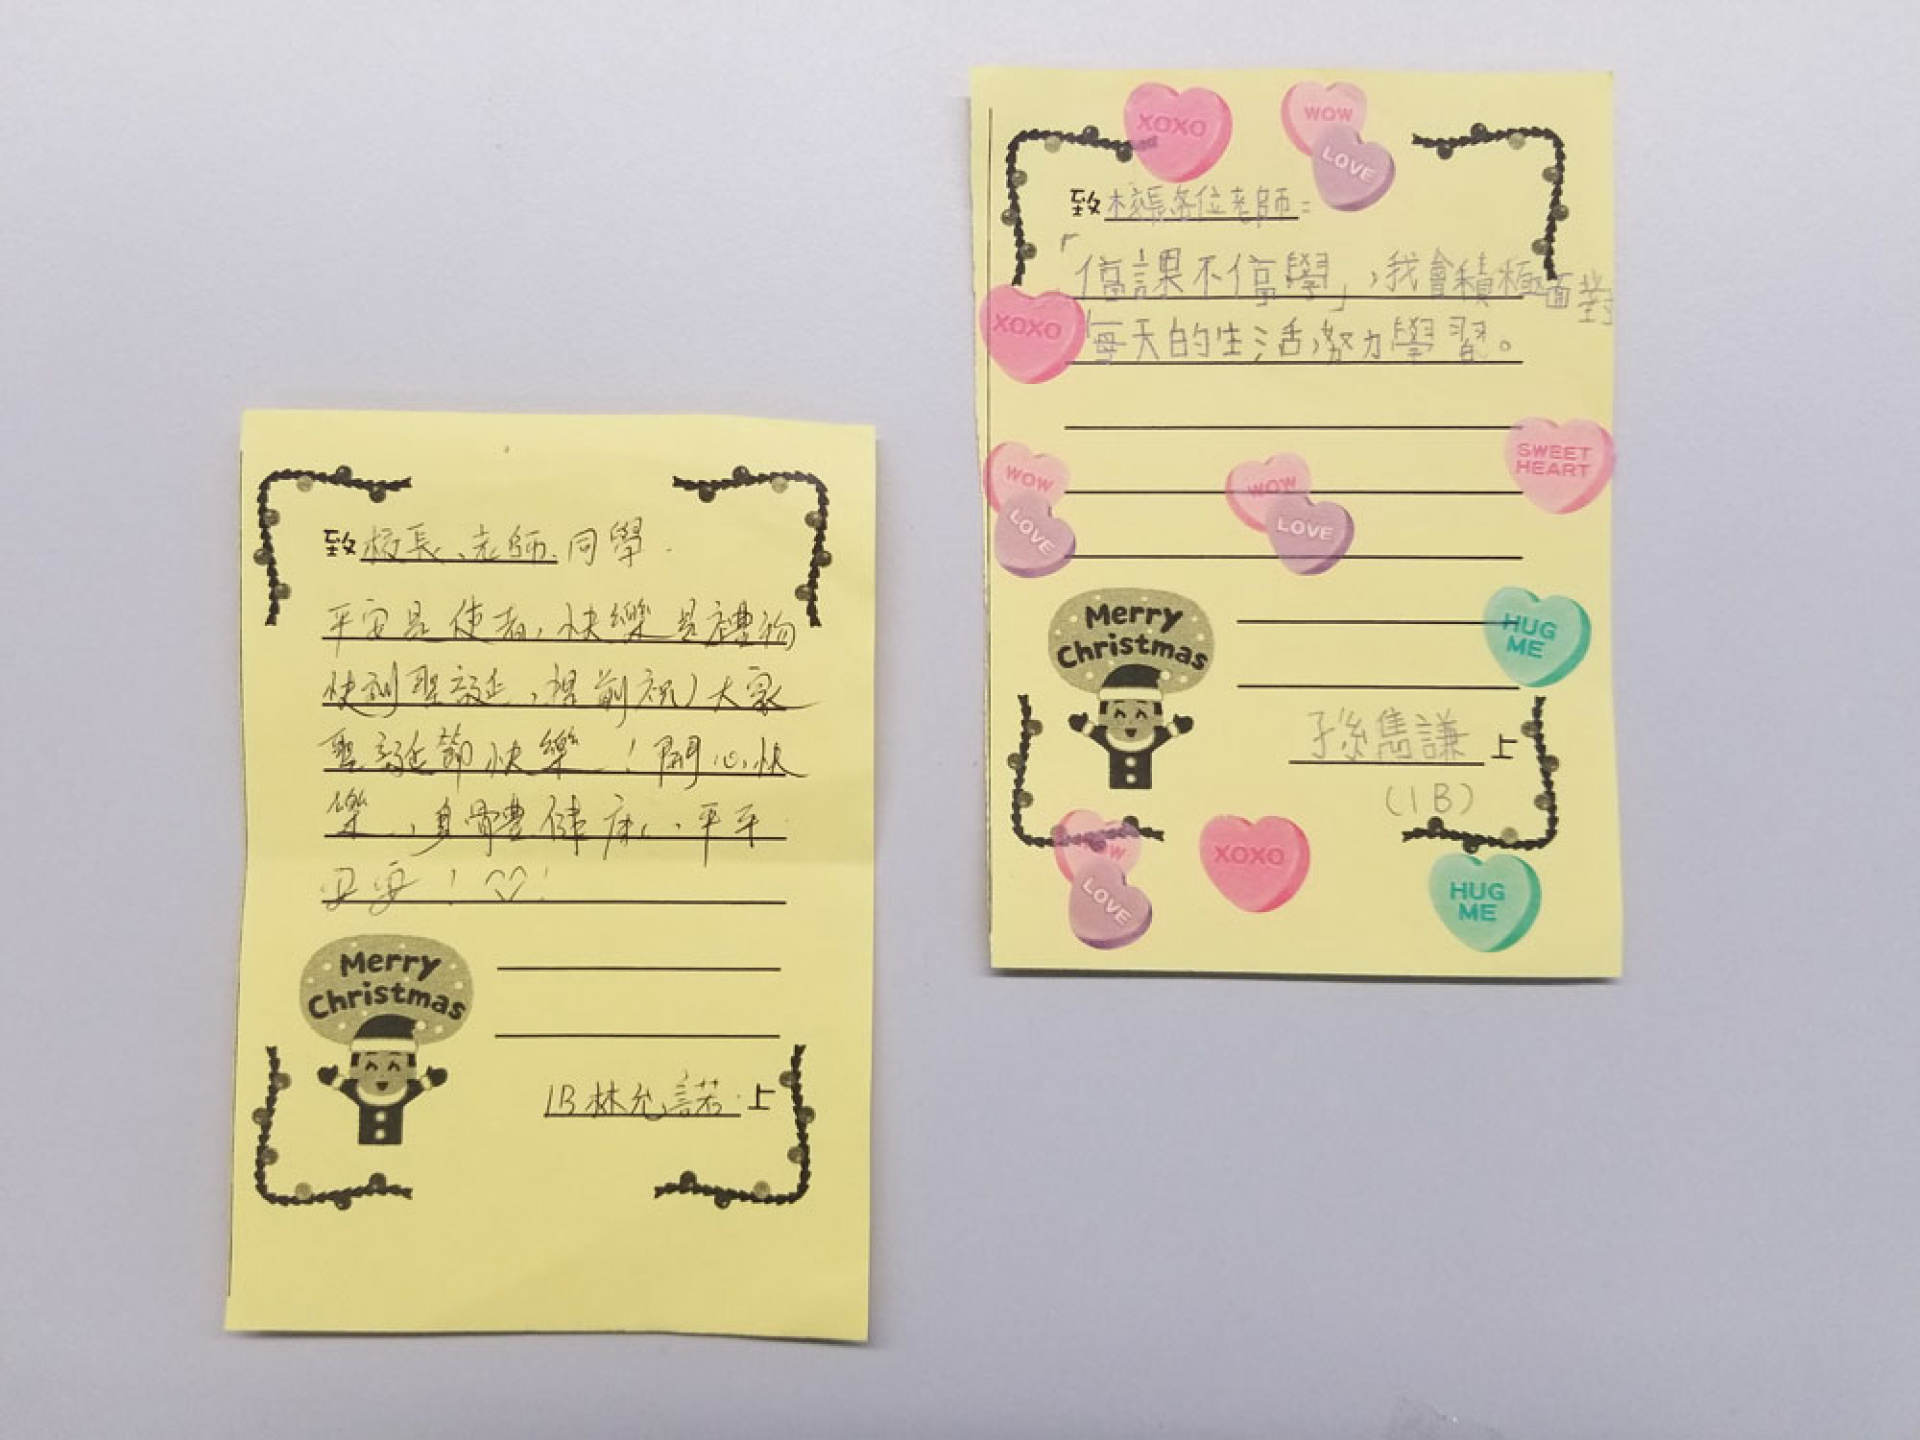 致校長、老師、同學
平安是使者，快樂是禮物
快到聖誕，提前祝大家
聖誕節快樂！開心快
樂，身體健康，平平
安安！♡！
Merry
Christmas
1B林允諾 上
XOXO
WOW
LOVE
致校長各位老師：
「停課不停學」，我會積極面對
XOXO
每天的生活，努力學習。
SWEET
HEART
WOW
LOVE
WOW
LOVE
Merry
Christmas
HUG
ME
孫雋謙 上
(1B)
WOW
LOVE
XOXO
HUG
ME